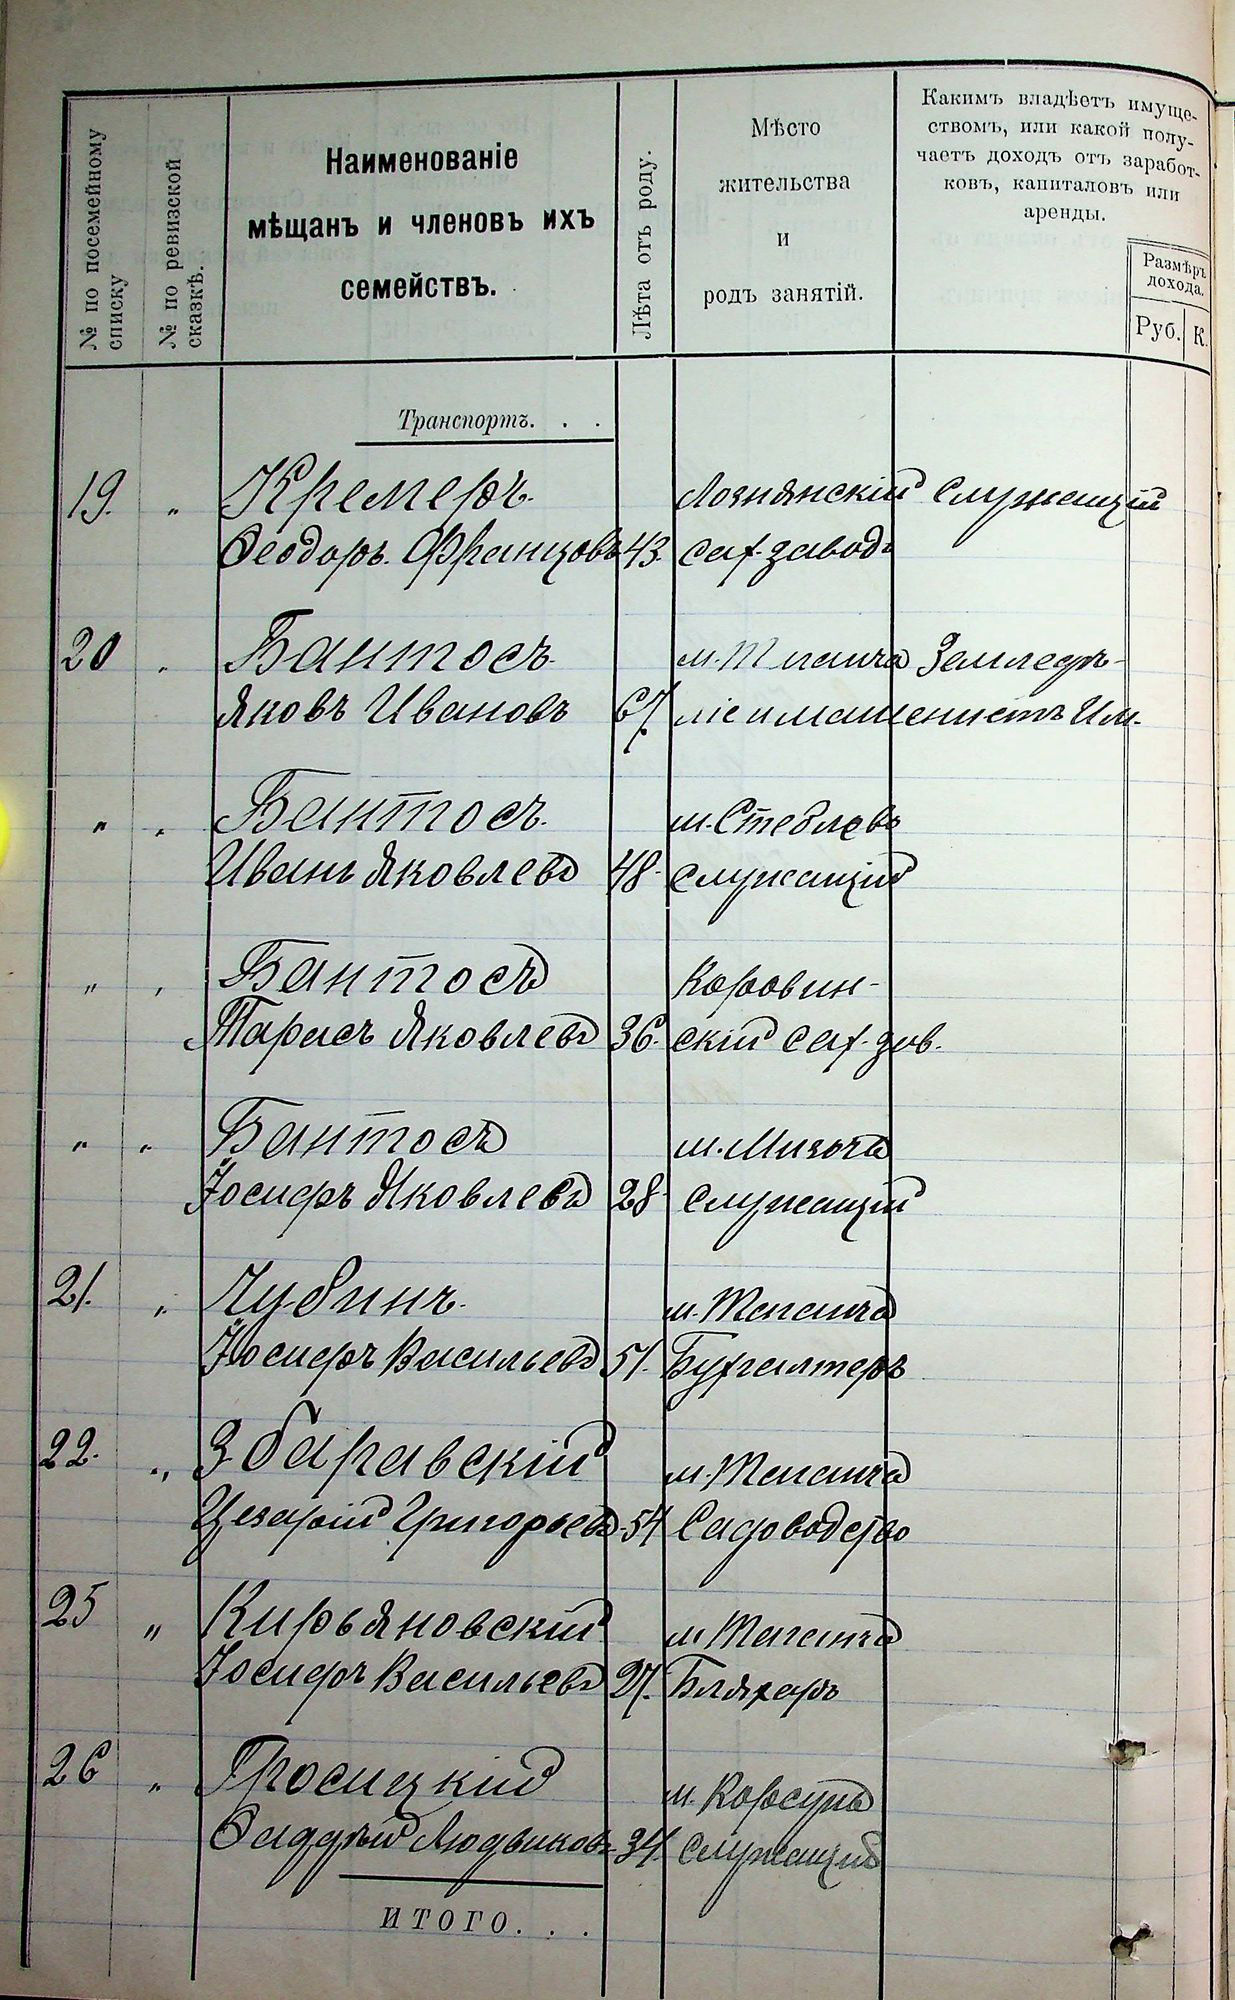 № по посемейному списку
№ по ревизской сказкѣ.
Наименованіе
мѣщанъ и членовъ ихъ
семействъ.
Лѣта отъ роду.
Мѣсто
жительства
и
родъ занятій.
Какимъ владѣетъ имуще-
ствомъ, или какой полу-
чаетъ доходъ отъ заработ-
ковъ, капиталовъ или
аренды.
Размѣръ
дохода.
Руб. К.
Транспортъ. . .
19. „ Кремеръ. Лознянскій служащій
Ѳеодоръ. Францовъ 43. сах. заводъ
20 „ Бантосъ. м. Таганча Земледѣ-
Яковъ Ивановъ 67. ліе и машенистъ им.
„ „ Бантосъ. м. Стеблевъ
Иванъ Яковлевъ 48. служащій
„ „ Бантосъ
Тарасъ Яковлевъ 36. скій сах. зав.
„ „ Бантосъ м. Мизочъ
Іосифъ Яковлевъ 28. служащій
21. „ Чубинъ. м. Таганча
Іосифъ Васильевъ 51. Бухгалтеръ
22. „ Збаравскій м. Таганча
Цезарій Григорьевъ 54 Садоводство
25 „ Кирьяновскій м. Таганча
Іосифъ Васильевъ 27. Бляхаръ
26 „ Гросицкій м. Корсунь
Ѳаддѣй Людвиковъ 34. служащій
ИТОГО. . .